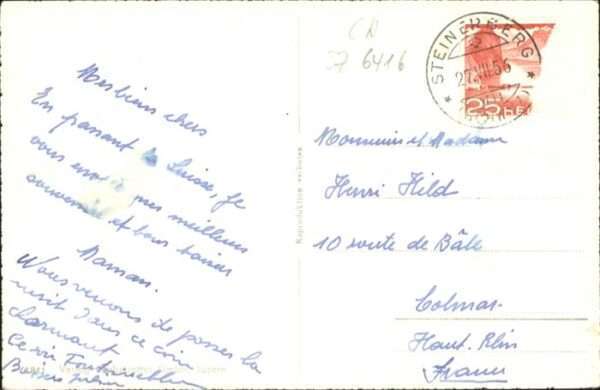 Mes biens chers
En passant la Suisse, je
vous envoie mes meilleurs
souvenirs et bons baisers
Maman.
Nous venons de passer la
nuit dans ce coin
charmant
Ce soir
Baisers
CA
7 6416
STEINERBERG
27.VII.56
25 HELVETIA
Monsieur et Madame
Henri Hild
10 route de Bâle
Colmar
Haut. Rhin
France
Reproduktion verboten